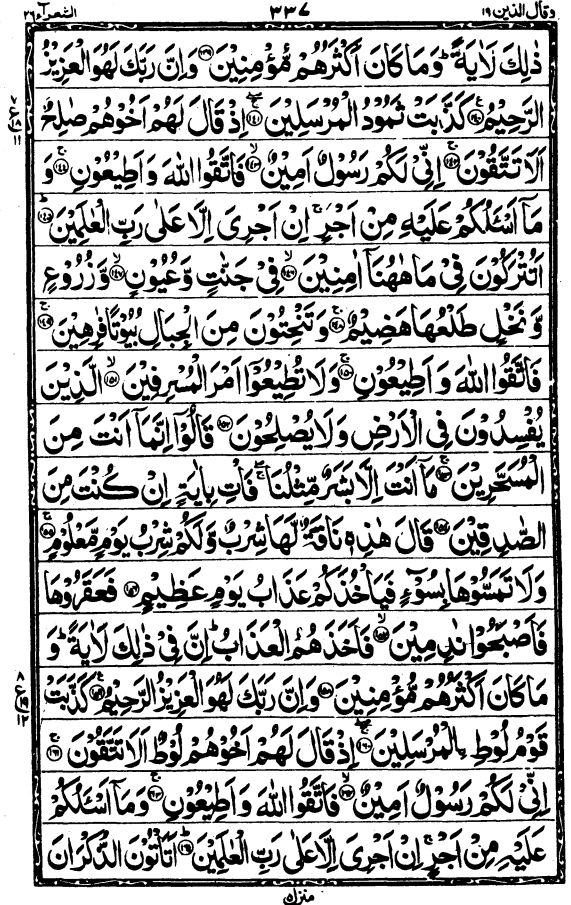 وقال الذين ١٩ ٣٣٧ الشعرآء ٢٦
ذٰلِكَ لَاٰيَةً ؕ وَمَا كَانَ اَكْثَرُهُمْ مُّؤْمِنِيْنَ ﴿۱۳۹﴾ وَاِنَّ رَبَّكَ لَهُوَ الْعَزِيْزُ
الرَّحِيْمُ ﴿۱۴۰﴾ كَذَّبَتْ ثَمُوْدُ الْمُرْسَلِيْنَ ﴿۱۴۱﴾ اِذْ قَالَ لَهُمْ اَخُوْهُمْ صٰلِحٌ
اَلَا تَتَّقُوْنَ ﴿۱۴۲﴾ اِنِّيْ لَكُمْ رَسُوْلٌ اَمِيْنٌ ﴿۱۴۳﴾ فَاتَّقُوا اللّٰهَ وَاَطِيْعُوْنِ ﴿۱۴۴﴾ وَ
مَاۤ اَسْـَٔلُكُمْ عَلَيْهِ مِنْ اَجْرٍ ۚ اِنْ اَجْرِيَ اِلَّا عَلٰى رَبِّ الْعٰلَمِيْنَ ﴿۱۴۵﴾
اَتُتْرَكُوْنَ فِيْ مَا هٰهُنَاۤ اٰمِنِيْنَ ﴿۱۴۶﴾ فِيْ جَنّٰتٍ وَّعُيُوْنٍ ﴿۱۴۷﴾ وَّزُرُوْعٍ
وَّنَخْلٍ طَلْعُهَا هَضِيْمٌ ﴿۱۴۸﴾ وَتَنْحِتُوْنَ مِنَ الْجِبَالِ بُيُوْتًا فٰرِهِيْنَ ﴿۱۴۹﴾
فَاتَّقُوا اللّٰهَ وَاَطِيْعُوْنِ ﴿۱۵۰﴾ وَلَا تُطِيْعُوْۤا اَمْرَ الْمُسْرِفِيْنَ ﴿۱۵۱﴾ الَّذِيْنَ
يُفْسِدُوْنَ فِي الْاَرْضِ وَلَا يُصْلِحُوْنَ ﴿۱۵۲﴾ قَالُوْۤا اِنَّمَاۤ اَنْتَ مِنَ
الْمُسَحَّرِيْنَ ﴿۱۵۳﴾ مَاۤ اَنْتَ اِلَّا بَشَرٌ مِّثْلُنَا ۖۚ فَاْتِ بِاٰيَةٍ اِنْ كُنْتَ مِنَ
الصّٰدِقِيْنَ ﴿۱۵۴﴾ قَالَ هٰذِهٖ نَاقَةٌ لَّهَا شِرْبٌ وَّلَكُمْ شِرْبُ يَوْمٍ مَّعْلُوْمٍ ﴿۱۵۵﴾
وَلَا تَمَسُّوْهَا بِسُوْٓءٍ فَيَاْخُذَكُمْ عَذَابُ يَوْمٍ عَظِيْمٍ ﴿۱۵۶﴾ فَعَقَرُوْهَا
فَاَصْبَحُوْا نٰدِمِيْنَ ﴿۱۵۷﴾ فَاَخَذَهُمُ الْعَذَابُ ؕ اِنَّ فِيْ ذٰلِكَ لَاٰيَةً ؕ وَ
مَا كَانَ اَكْثَرُهُمْ مُّؤْمِنِيْنَ ﴿۱۵۸﴾ وَاِنَّ رَبَّكَ لَهُوَ الْعَزِيْزُ الرَّحِيْمُ ﴿۱۵۹﴾ كَذَّبَتْ
قَوْمُ لُوْطِ ۨالْمُرْسَلِيْنَ ﴿۱۶۰﴾ اِذْ قَالَ لَهُمْ اَخُوْهُمْ لُوْطٌ اَلَا تَتَّقُوْنَ ﴿۱۶۱﴾
اِنِّيْ لَكُمْ رَسُوْلٌ اَمِيْنٌ ﴿۱۶۲﴾ فَاتَّقُوا اللّٰهَ وَاَطِيْعُوْنِ ﴿۱۶۳﴾ وَمَاۤ اَسْـَٔلُكُمْ
عَلَيْهِ مِنْ اَجْرٍ ۚ اِنْ اَجْرِيَ اِلَّا عَلٰى رَبِّ الْعٰلَمِيْنَ ﴿۱۶۴﴾ اَتَاْتُوْنَ الذُّكْرَانَ
منزل